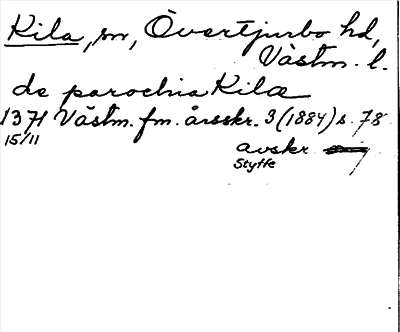 Kila, sn, Övertjurbo hd,
Västm. l.
de parochia Kila
1371 Västm. fm. årsskr. 3 (1884) s. 78
15/11
avskr
Styffe